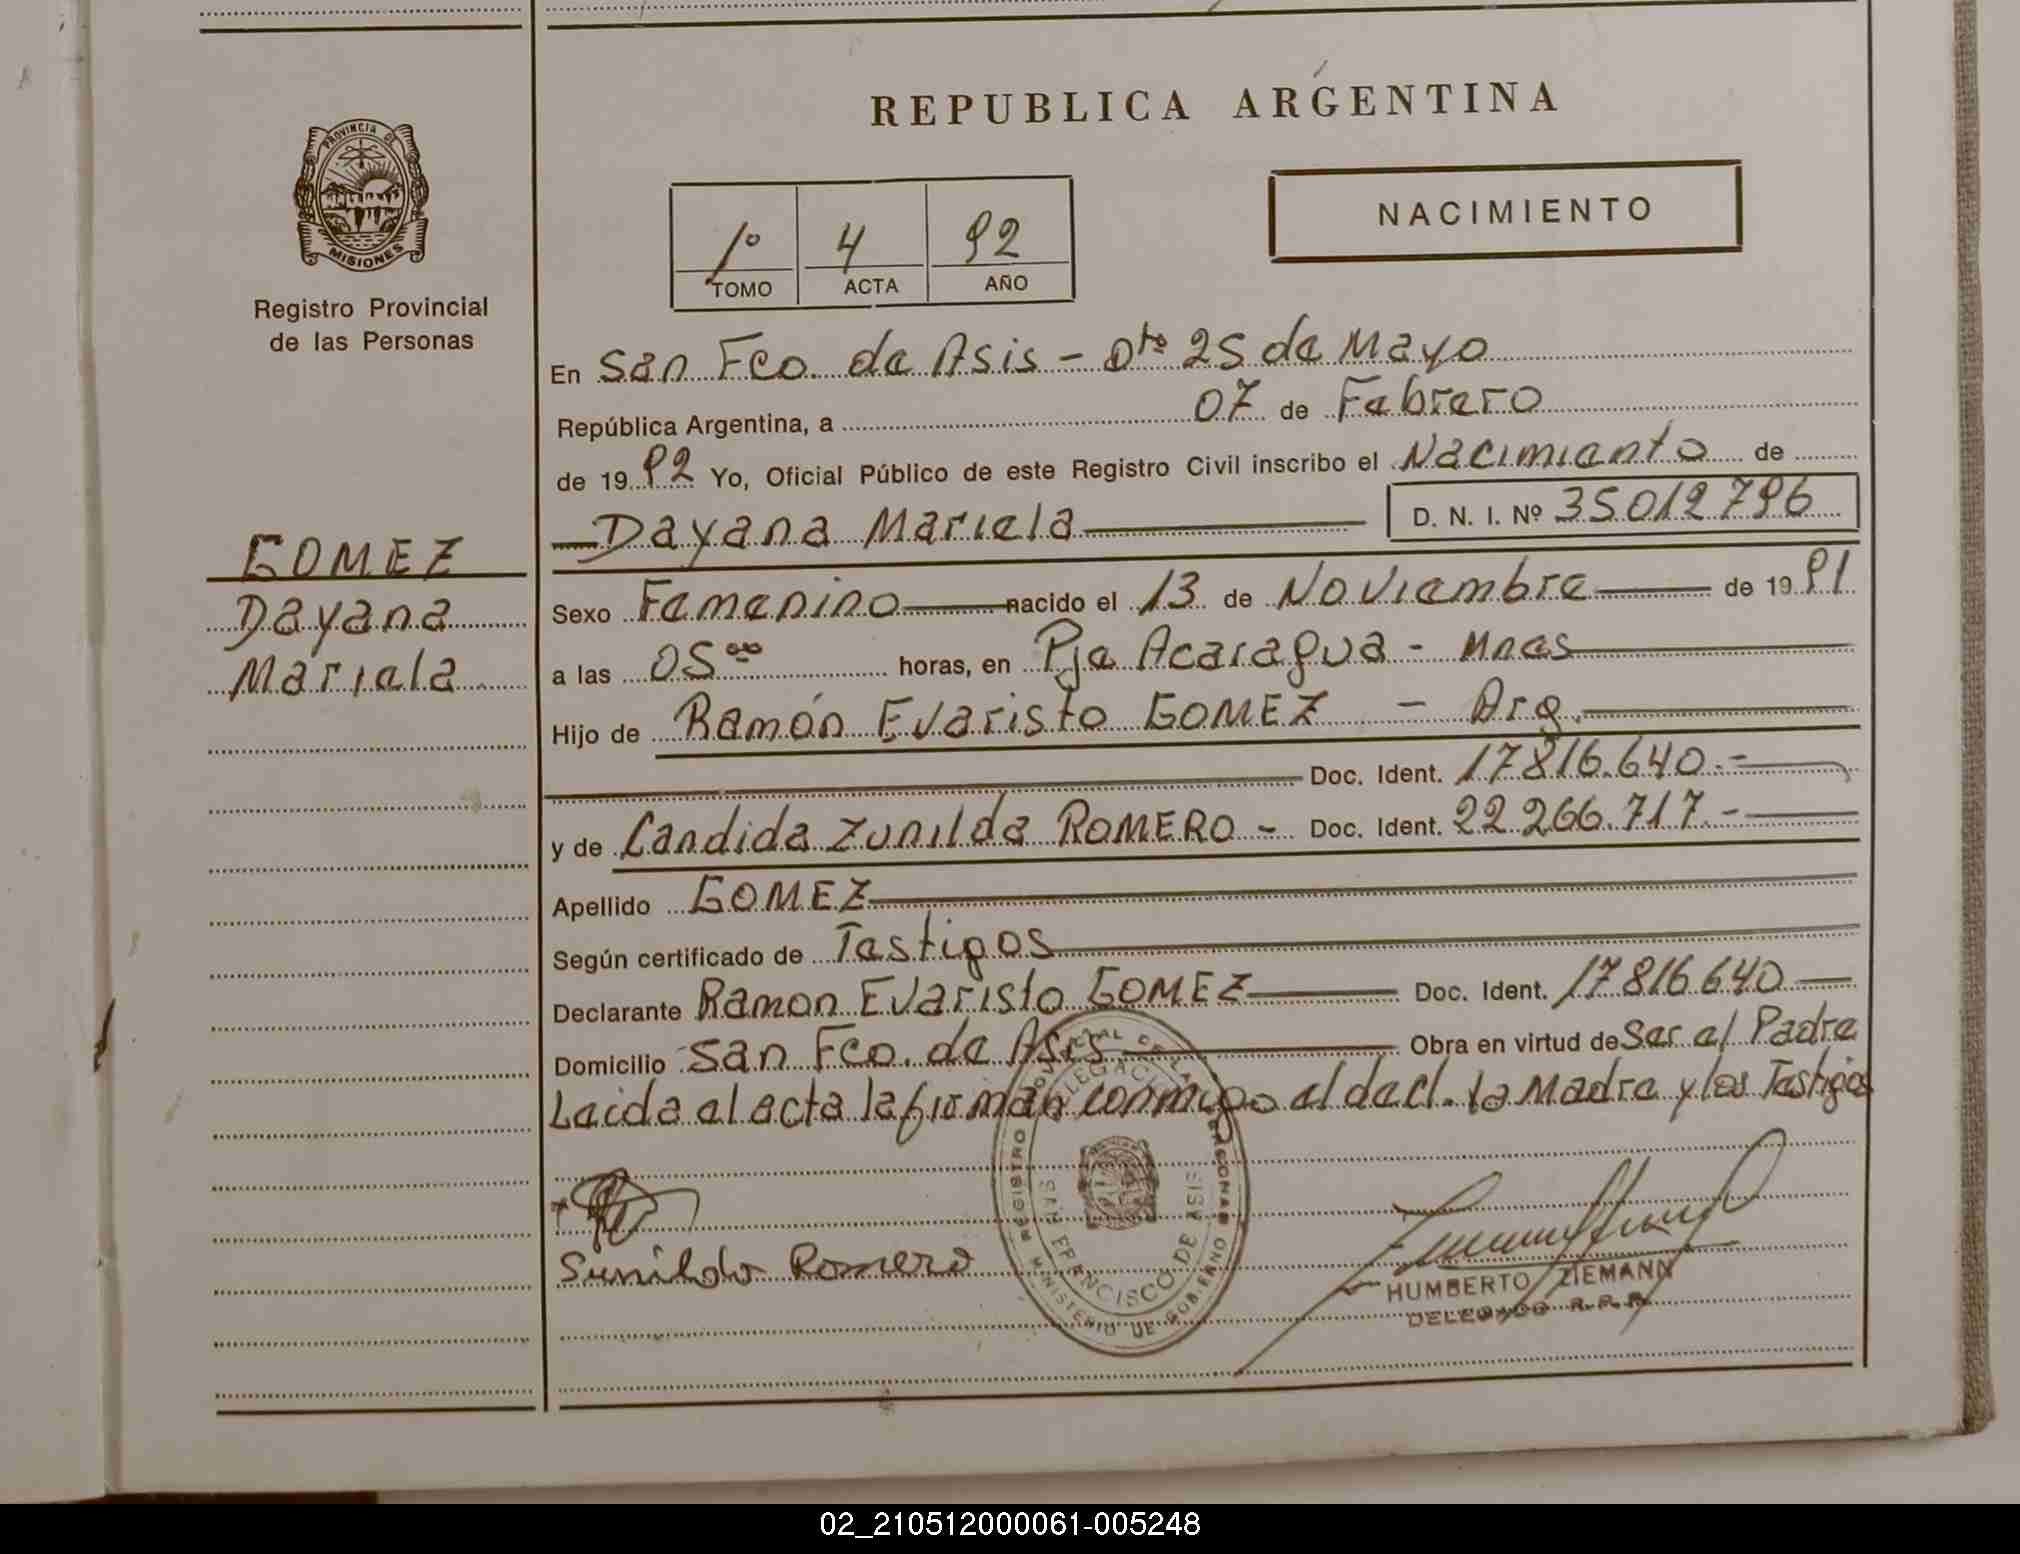 REPUBLICA ARGENTINA
PROVINCIA DE
MISIONES
Registro Provincial
de las Personas
1º 4 92
TOMO ACTA AÑO
NACIMIENTO
En San Fco. de Asis - Dto 25 de Mayo
República Argentina, a 07 de Febrero
de 19 92 Yo, Oficial Público de este Registro Civil inscribo el Nacimiento de
Dayana Mariela D. N. I. Nº 35012796
GOMEZ
Dayana
Mariela
Sexo Femenino nacido el 13 de Noviembre de 19 91
a las 05 00 horas, en Pje Acaragua - Mnes
Hijo de Ramón Evaristo GOMEZ - Arg.
Doc. Ident. 17816.640.-
y de Candida Zunilda ROMERO - Doc. Ident. 22.266.717.-
Apellido GOMEZ
Según certificado de Testigos
Declarante Ramon Evaristo GOMEZ Doc. Ident. 17816640
Domicilio San Fco. de Asis Obra en virtud de Ser el Padre
Leida el acta la firman conmigo el decl. la Madre y los Testigos
REGISTRO PROVINCIAL DE LAS PERSONAS
DELEGACION
SAN FRANCISCO DE ASIS
MINISTERIO DE GOBIERNO
Sunilda Romero
HUMBERTO ZIEMANN
DELEGADO R.P.P.
02_210512000061-005248